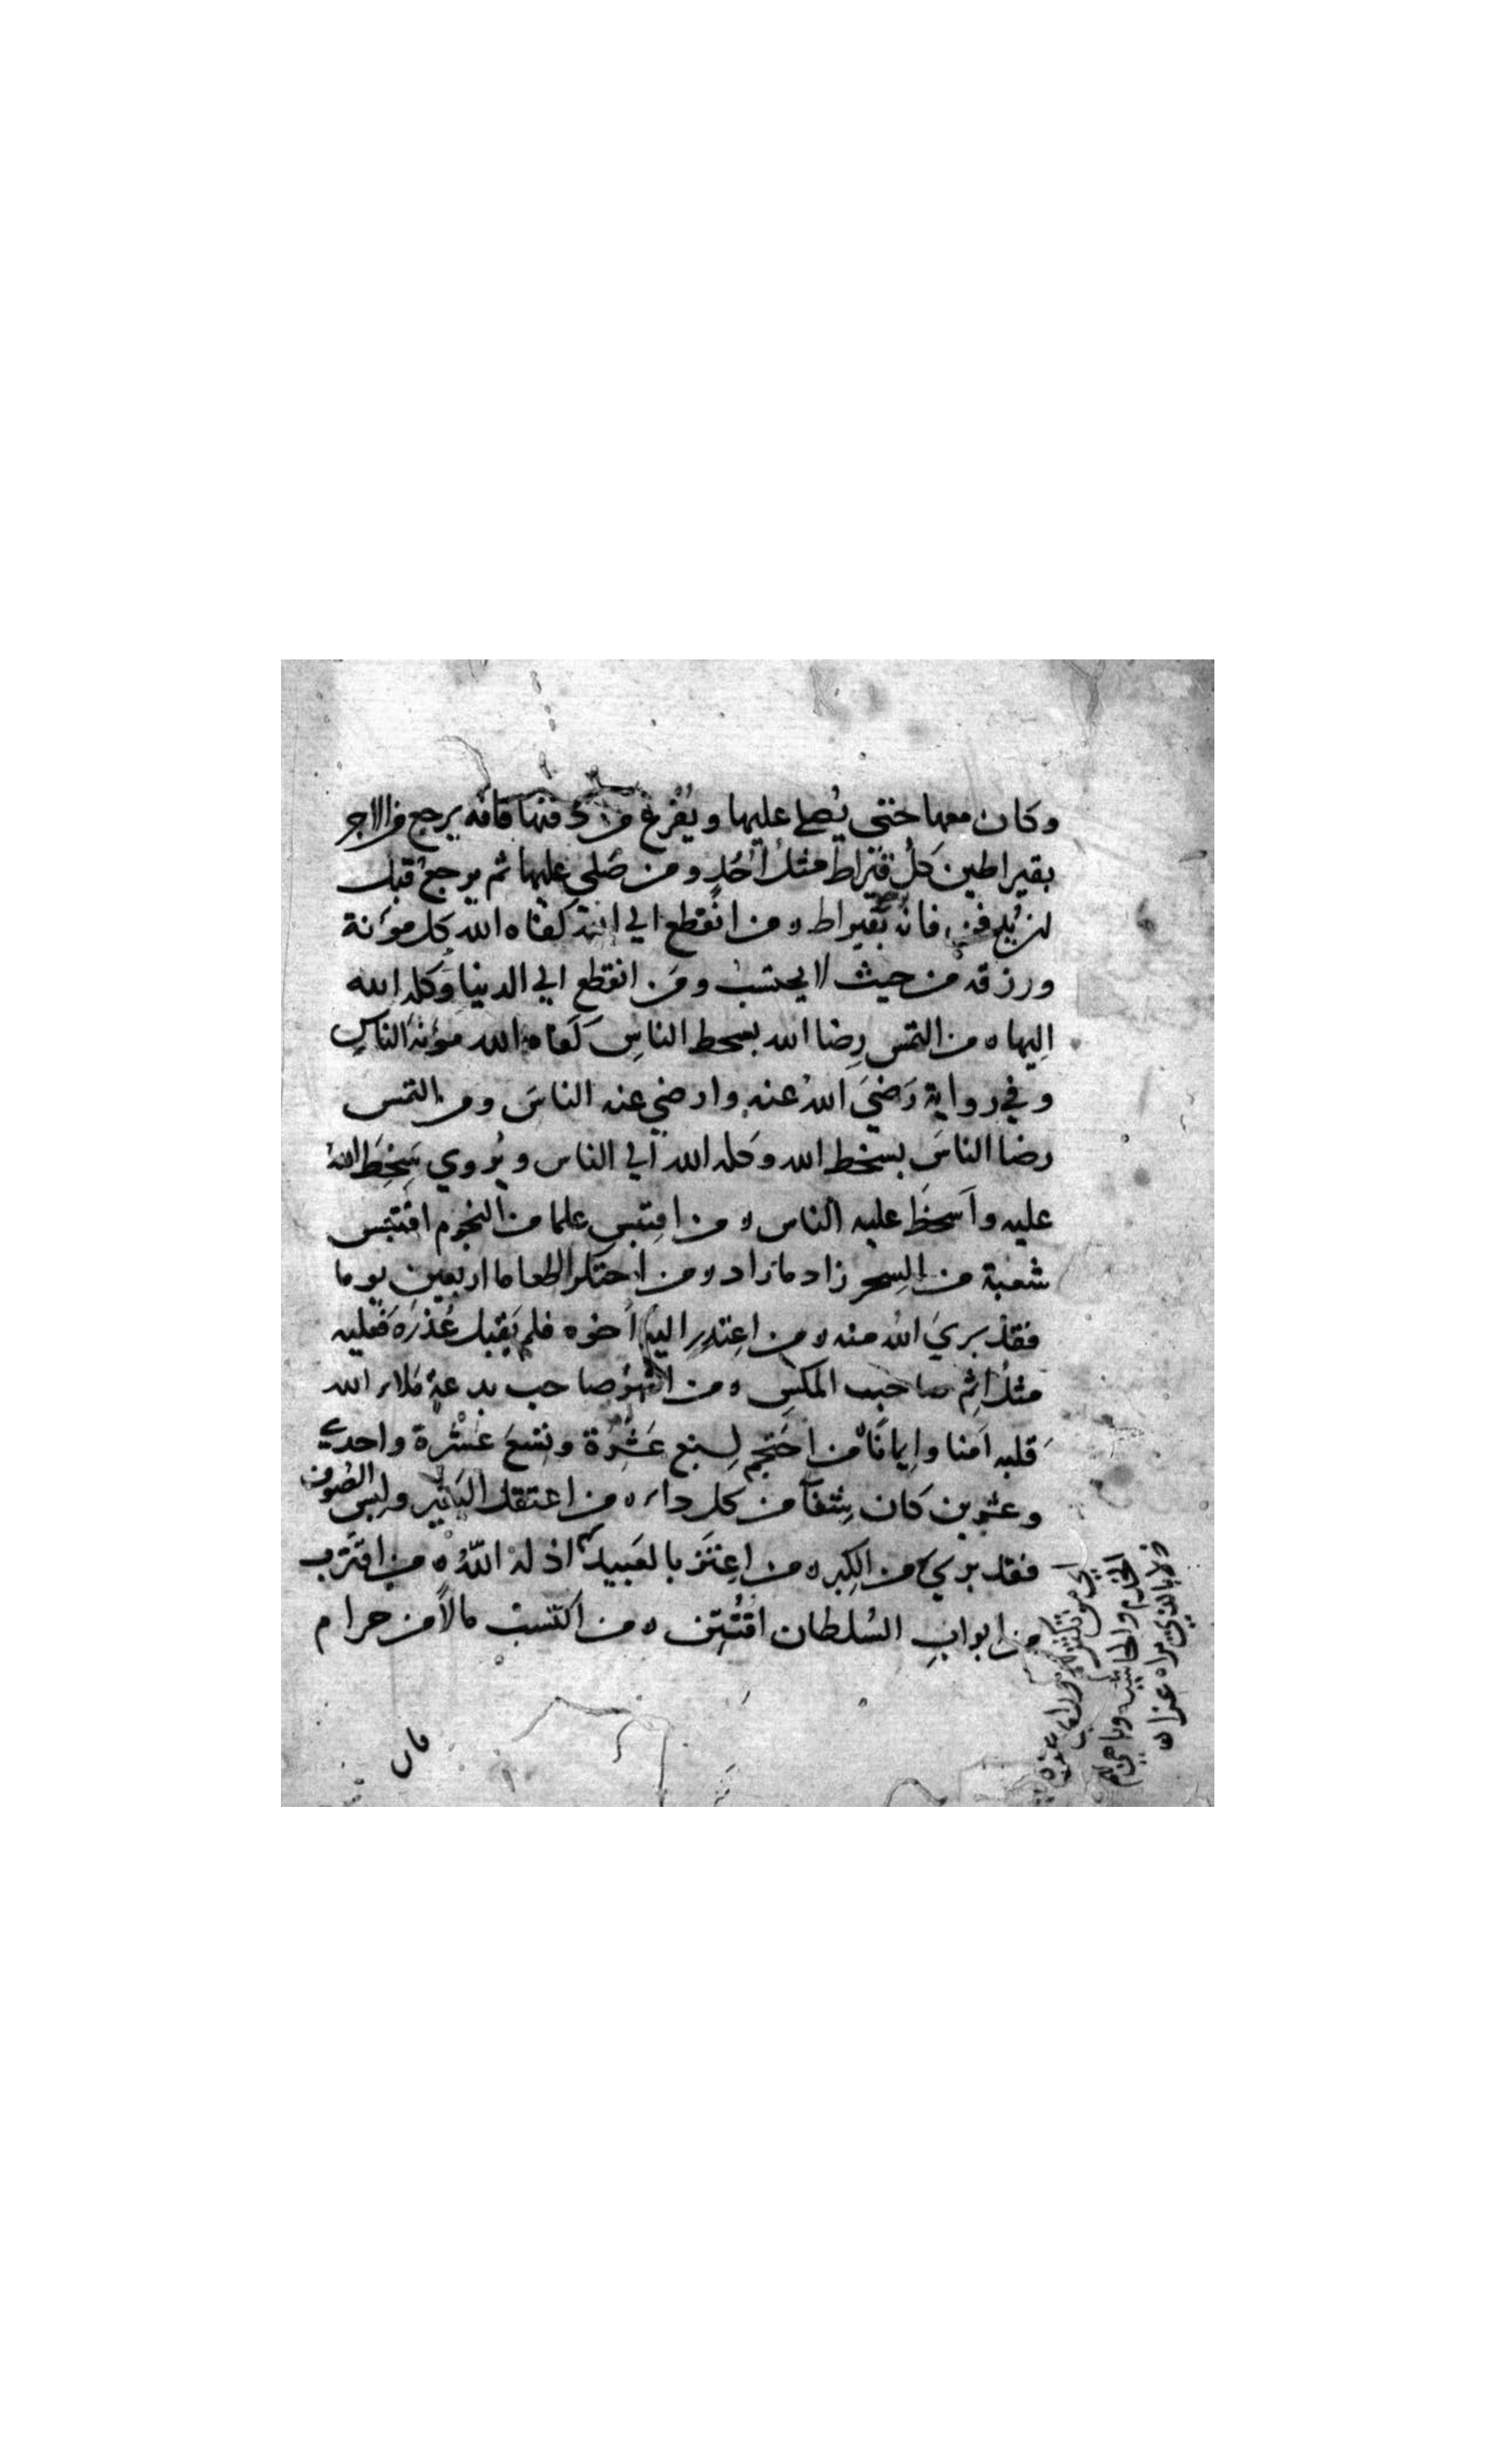 وكان معها حتى يُصلي عليها ويُفرغ من دفنها فانه يرجع من الاجر
بقيراطين كلُ قيراط مثل اُحُدٍ ومن صَلي عليها ثم يرجعُ قبل
ان يُدفن فانه بقيراط ه من انقطع الي الله كفاه الله كل مؤنة
ورزقه من حيث لا يحتسب ومَن انقطع الي الدنيا وَكله الله
اليها ه من التمس رِضا الله بسخط الناسِ كَفاه الله مؤنة الناسِ
وفي رواية رَضيَ اللهُ عنه وارضي عنه الناسَ ومن التمس
رضا الناسَ بسخط الله وكله الله الي الناس ويُروي سَخِطَ اللهُ
عليه واَسخطَ عليه الناس ه من اقتبس علما من النجوم اقتبس
شعبة من السِحر زاد ما زاد ه من احتكر الطعاما اربعين يوما
فقد بريَ اللهُ منه ه من اعتذر اليهِ اَخوه فلم يَقبل عُذرَه فَعليه
مثلُ اثِم صاحب المكسِ ه من انتهرَ صاحب بدعةٍ ملاء الله
قلبه اَمنا وايمانًا ه من احتجم لِسبع عَشرَة وتسعَ عشرة واحدي
وعشرين كان شِفاً من كل داء ه من اعتقل البَعير ولبس الصُوف
فقد بريَ من الكِبر ه من اعتزَ بالعَبيد اذله اللهُ ه من اقترب
من ابوابِ السُلطان افتُتِن ه من اكتسبَ مالاً من حرام